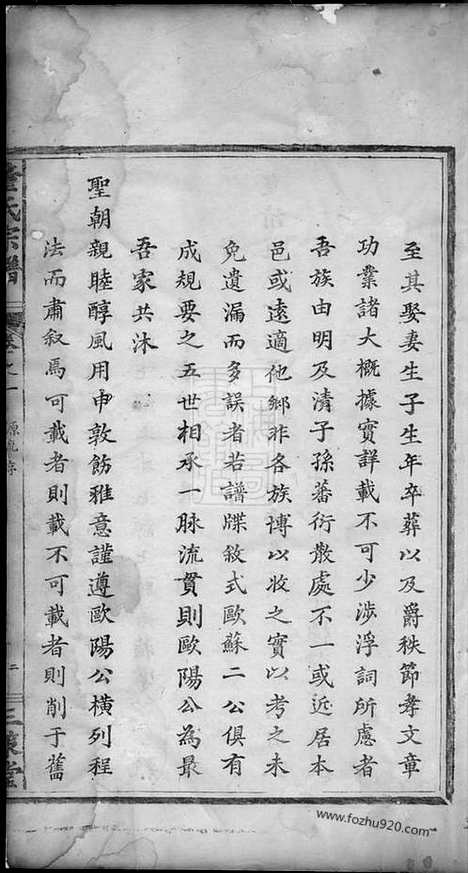 至其娶妻生子生年卒葬以及爵秩節孝文章
功業諸大概據實詳載不可少涉浮詞所慮者
吾族由明及清子孫蕃衍散處不一或近居本
邑或遠適他鄉非各族博以收之實以考之未
免遺漏而多誤者若譜牒敘式歐蘇二公俱有
成規要之五世相承一脉流貫則歐陽公為最
吾家共沐
聖朝親睦醇風用申敦飭雅意謹遵歐陽公橫列程
法而肅叙焉可載者則載不可載者則削于舊
氏宗譜
卷之一
二
三
堂
www.fozhu920.com